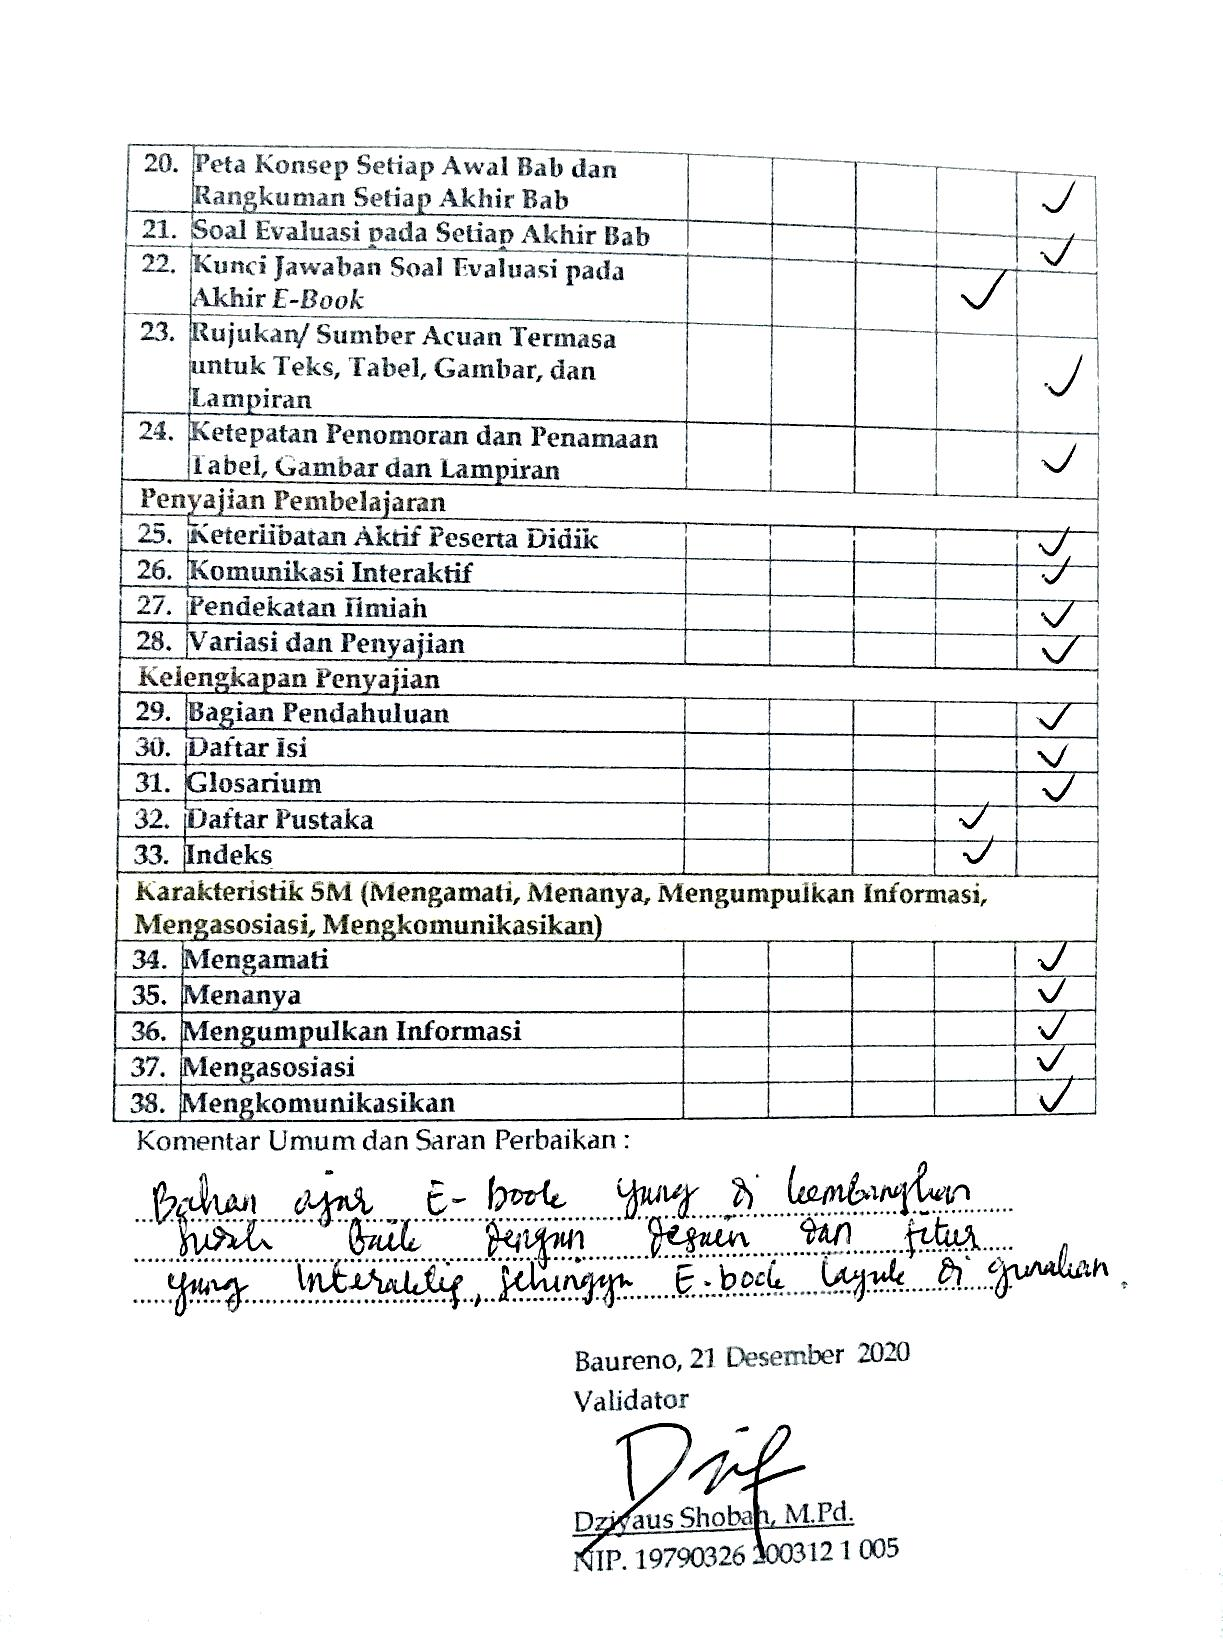 20. Peta Konsep Setiap Awal Bab dan
Rangkuman Setiap Akhir Bab ✓
21. Soal Evaluasi pada Setiap Akhir Bab ✓
22. Kunci Jawaban Soal Evaluasi pada
Akhir E-Book ✓
23. Rujukan/ Sumber Acuan Termasa
untuk Teks, Tabel, Gambar, dan
Lampiran ✓
24. Ketepatan Penomoran dan Penamaan
Tabel, Gambar dan Lampiran ✓
Penyajian Pembelajaran
25. Keterlibatan Aktif Peserta Didik ✓
26. Komunikasi Interaktif ✓
27. Pendekatan Ilmiah ✓
28. Variasi dan Penyajian ✓
Kelengkapan Penyajian
29. Bagian Pendahuluan ✓
30. Daftar Isi ✓
31. Glosarium ✓
32. Daftar Pustaka ✓
33. Indeks ✓
Karakteristik 5M (Mengamati, Menanya, Mengumpulkan Informasi,
Mengasosiasi, Mengkomunikasikan)
34. Mengamati ✓
35. Menanya ✓
36. Mengumpulkan Informasi ✓
37. Mengasosiasi ✓
38. Mengkomunikasikan ✓
Komentar Umum dan Saran Perbaikan :
Bahan ajar E-book yang di kembangkan
sudah baik dengan desain dan fitur
yang Interaktif, sehingga E-book layak di gunakan.
Baureno, 21 Desember 2020
Validator
Dziyaus Shobah, M.Pd.
NIP. 19790326 200312 1 005